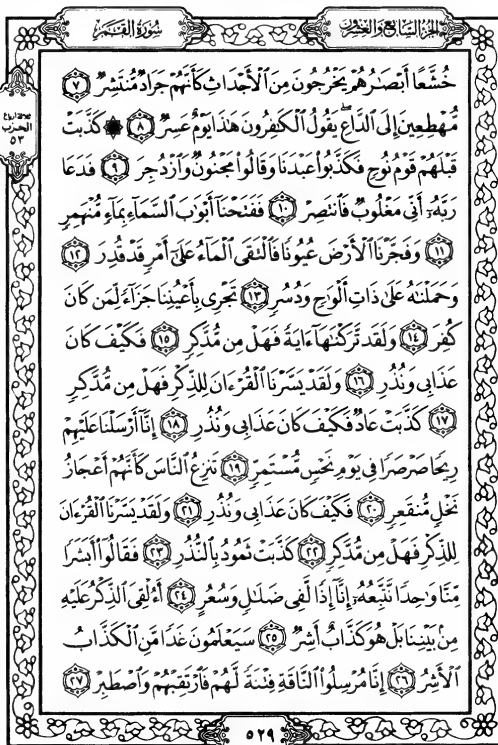 سُورَةُ القَمَر
الجزء السابع والعشرون
خُشَّعًا أَبْصَٰرُهُمْ يَخْرُجُونَ مِنَ ٱلْأَجْدَاثِ كَأَنَّهُمْ جَرَادٌ مُّنتَشِرٌ ٧
مُّهْطِعِينَ إِلَى ٱلدَّاعِ ۖ يَقُولُ ٱلْكَٰفِرُونَ هَٰذَا يَوْمٌ عَسِرٌ ٨ ۞ كَذَّبَتْ
قَبْلَهُمْ قَوْمُ نُوحٍ فَكَذَّبُوا۟ عَبْدَنَا وَقَالُوا۟ مَجْنُونٌ وَٱزْدُجِرَ ٩ فَدَعَا
رَبَّهُۥٓ أَنِّى مَغْلُوبٌ فَٱنتَصِرْ ١٠ فَفَتَحْنَآ أَبْوَٰبَ ٱلسَّمَآءِ بِمَآءٍ مُّنْهَمِرٍ
١١ وَفَجَّرْنَا ٱلْأَرْضَ عُيُونًا فَٱلْتَقَى ٱلْمَآءُ عَلَىٰٓ أَمْرٍ قَدْ قُدِرَ ١٢
وَحَمَلْنَٰهُ عَلَىٰ ذَاتِ أَلْوَٰحٍ وَدُسُرٍ ١٣ تَجْرِى بِأَعْيُنِنَا جَزَآءً لِّمَن كَانَ
كُفِرَ ١٤ وَلَقَد تَّرَكْنَٰهَآ ءَايَةً فَهَلْ مِن مُّدَّكِرٍ ١٥ فَكَيْفَ كَانَ
عَذَابِى وَنُذُرِ ١٦ وَلَقَدْ يَسَّرْنَا ٱلْقُرْءَانَ لِلذِّكْرِ فَهَلْ مِن مُّدَّكِرٍ
١٧ كَذَّبَتْ عَادٌ فَكَيْفَ كَانَ عَذَابِى وَنُذُرِ ١٨ إِنَّآ أَرْسَلْنَا عَلَيْهِمْ
رِيحًا صَرْصَرًا فِى يَوْمِ نَحْسٍ مُّسْتَمِرٍّ ١٩ تَنزِعُ ٱلنَّاسَ كَأَنَّهُمْ أَعْجَازُ
نَخْلٍ مُّنقَعِرٍ ٢٠ فَكَيْفَ كَانَ عَذَابِى وَنُذُرِ ٢١ وَلَقَدْ يَسَّرْنَا ٱلْقُرْءَانَ
لِلذِّكْرِ فَهَلْ مِن مُّدَّكِرٍ ٢٢ كَذَّبَتْ ثَمُودُ بِٱلنُّذُرِ ٢٣ فَقَالُوٓا۟ أَبَشَرًا
مِّنَّا وَٰحِدًا نَّتَّبِعُهُۥٓ إِنَّآ إِذًا لَّفِى ضَلَٰلٍ وَسُعُرٍ ٢٤ أَءُلْقِىَ ٱلذِّكْرُ عَلَيْهِ
مِنۢ بَيْنِنَا بَلْ هُوَ كَذَّابٌ أَشِرٌ ٢٥ سَيَعْلَمُونَ غَدًا مَّنِ ٱلْكَذَّابُ
ٱلْأَشِرُ ٢٦ إِنَّا مُرْسِلُوا۟ ٱلنَّاقَةِ فِتْنَةً لَّهُمْ فَٱرْتَقِبْهُمْ وَٱصْطَبِرْ ٢٧
الحزب
٥٣
٥٢٩